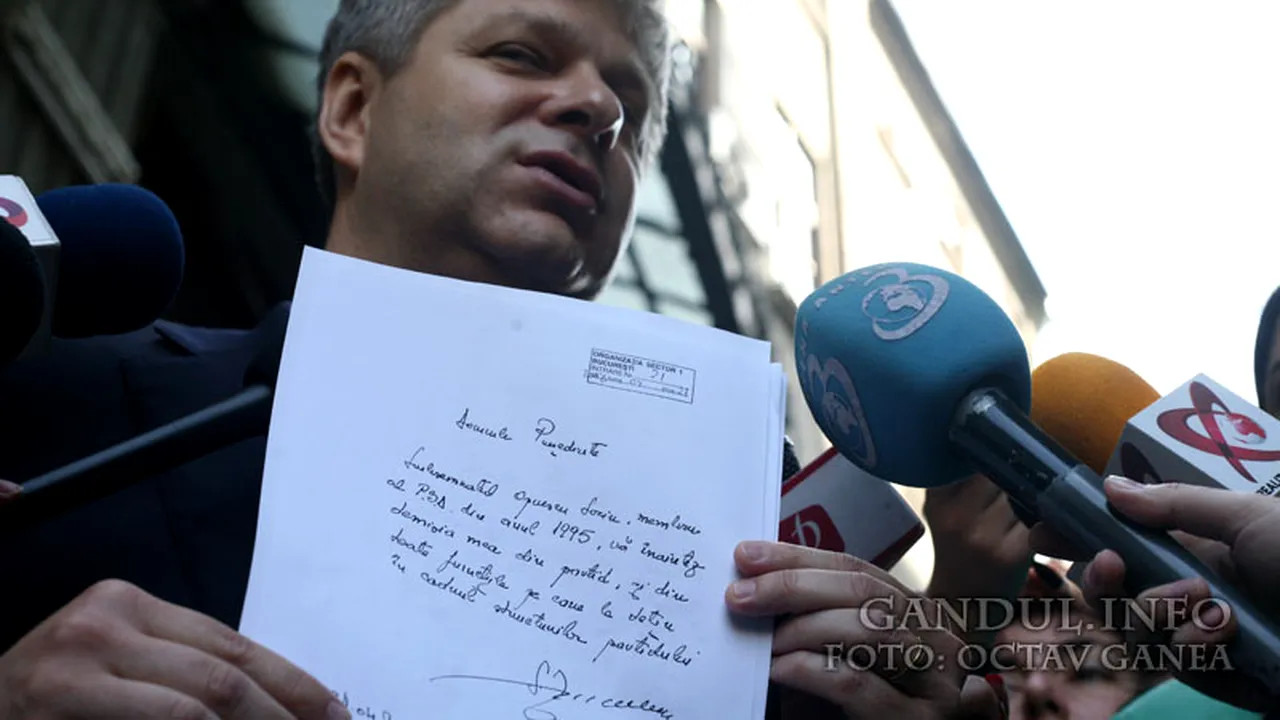 ORGANIZAȚIA SECTOR 1
BUCUREȘTI
INTRARE Nr. 21
Domnule Președinte
Subsemnatul Oprescu Sorin, membru
al PSD din anul 1995, vă înaintez
demisia mea din partid, și din
toate funcțiile pe care le dețin
în cadrul structurilor partidului
ANTENA
GANDUL.INFO
FOTO: OCTAV GANEA